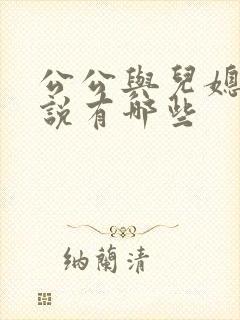 公公與兒媳
說有哪些
納蘭清